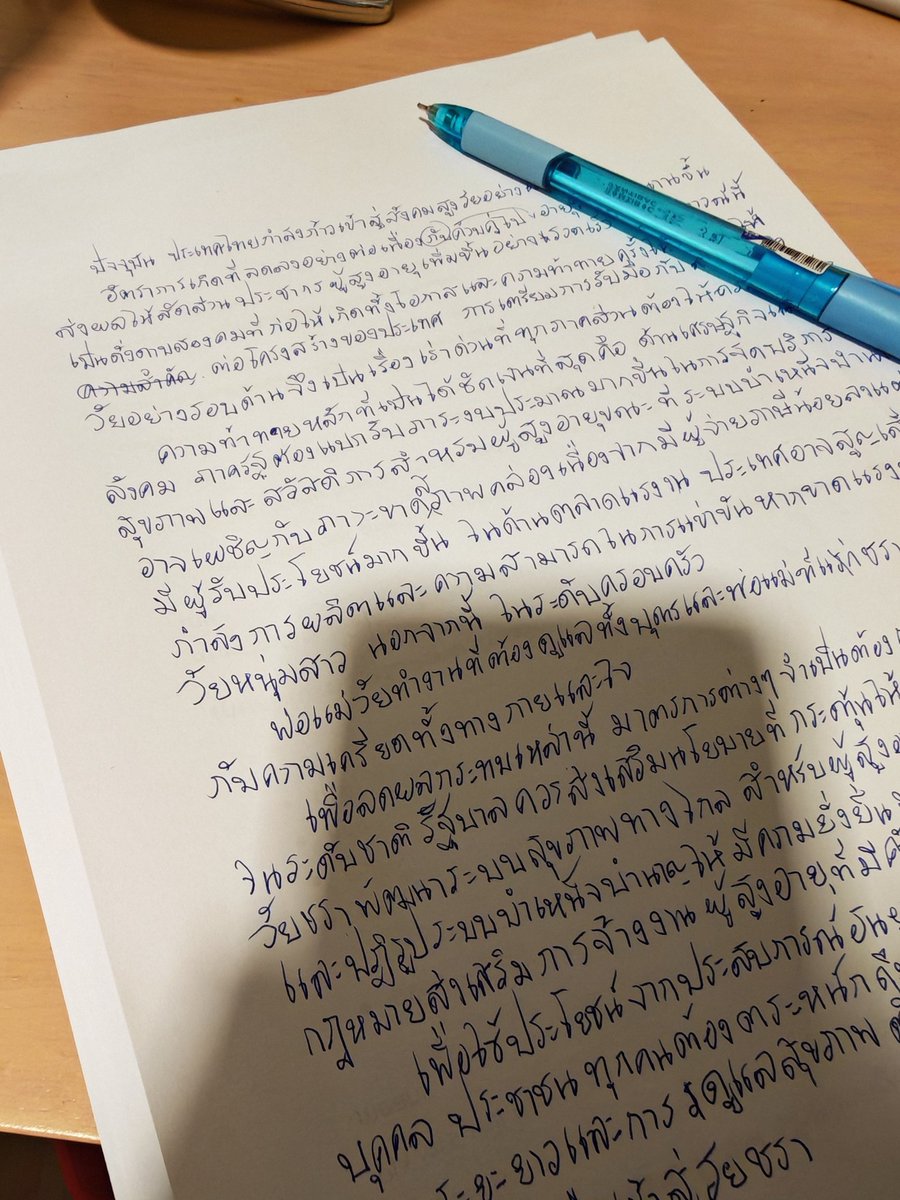 ปัจจุบัน ประเทศไทยกำลังก้าวเข้าสู่สังคมสูงวัยอย่าง านขึ้น
อัตราการเกิดที่ลดลงอย่างต่อเนื่อง อายุ ารณ์นี้
ส่งผลให้สัดส่วนประชากรผู้สูงอายุเพิ่มขึ้นอย่างรวดเร็ว
เป็นดั่งดาบสองคมที่ก่อให้เกิดทั้งโอกาสและความท้าทายครั้ง
ความสำคัญ ต่อโครงสร้างของประเทศ การเตรียมการรับมือกับ
วัยอย่างรอบด้านจึงเป็นเรื่องเร่งด่วนที่ทุกภาคส่วนต้องให้คว
ความท้าทายหลักที่เห็นได้ชัดเจนที่สุดคือ ด้านเศรษฐกิจ
สังคม ภาครัฐต้องแบกรับภาระงบประมาณมากขึ้นในการจัดบริการ
สุขภาพและสวัสดิการสำหรับผู้สูงอายุขณะที่ระบบบำเหน็จบำน
อาจเผชิญกับภาวะขาดสภาพคล่องเนื่องจากมีผู้จ่ายภาษีน้อยลงแต่
มีผู้รับประโยชน์มากขึ้น ในด้านตลาดแรงงาน ประเทศอาจสูญเสีย
กำลังการผลิตและความสามารถในการแข่งขันหากขาดแรงง
วัยหนุ่มสาว นอกจากนี้ ในระดับครอบครัว
พ่อแม่วัยทำงานที่ต้องดูแลทั้งบุตรและพ่อแม่ที่แก่ชรา
กับความเครียดทั้งทางกายและใจ
เพื่อลดผลกระทบเหล่านี้ มาตรการต่างๆ จำเป็นต้อง
ในระดับชาติ รัฐบาลควรส่งเสริมนโยบายที่กระตุ้นให้
วัยชรา พัฒนาระบบสุขภาพทางไกล สำหรับผู้สูงอ
และปฏิรูประบบบำเหน็จบำนาญให้มีความยั่งยืน
กฎหมายส่งเสริมการจ้างงานผู้สูงอายุที่มี
เพื่อใช้ประโยชน์จากประสบการณ์อัน
บุคคล ประชาชนทุกคนต้องตระหนักถึง
ระยะยาวและการ ดูแลสุขภาพ
สู่วัยชรา